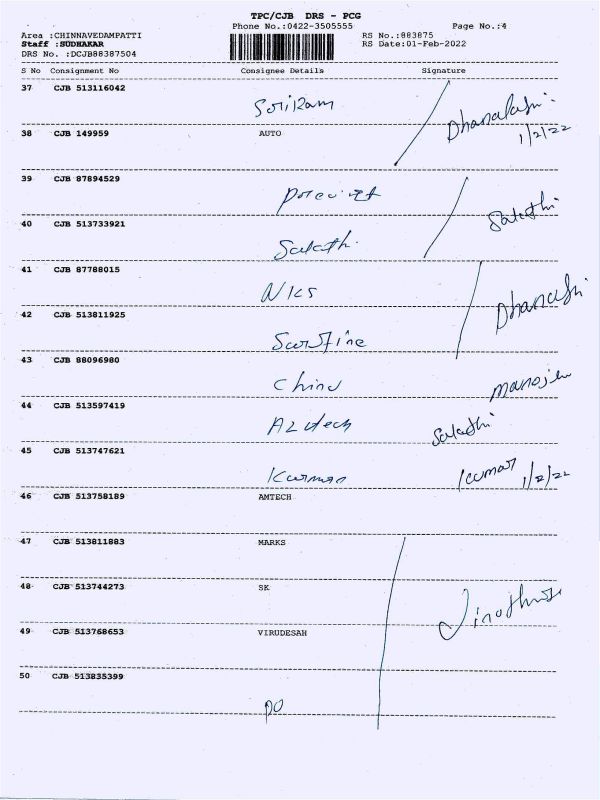 TPC/CJB DRS - PCG
Phone No.:0422-3505555 Page No.:4
Area :CHINNAVEDAMPATTI RS No.:883875
Staff :SUDHAKAR RS Date:01-Feb-2022
DRS No. :DCJB88387504
S No Consignment No Consignee Details Signature
37 CJB 513116042
Sriram Dhanalashi
38 CJB 149959 AUTO 1/2/22
39 CJB 87894529
40 CJB 513733921
Sakthi Sakthi
41 CJB 87788015
NICS
42 CJB 513811925
43 CJB 88096980
44 CJB 513597419
Sakthi
45 CJB 513747621
Kumar 1/2/22
46 CJB 513758189 AMTECH
47 CJB 513811883 MARKS
48 CJB 513744273 SK
49 CJB 513768653 VIRUDESAH
50 CJB 513835399
DO